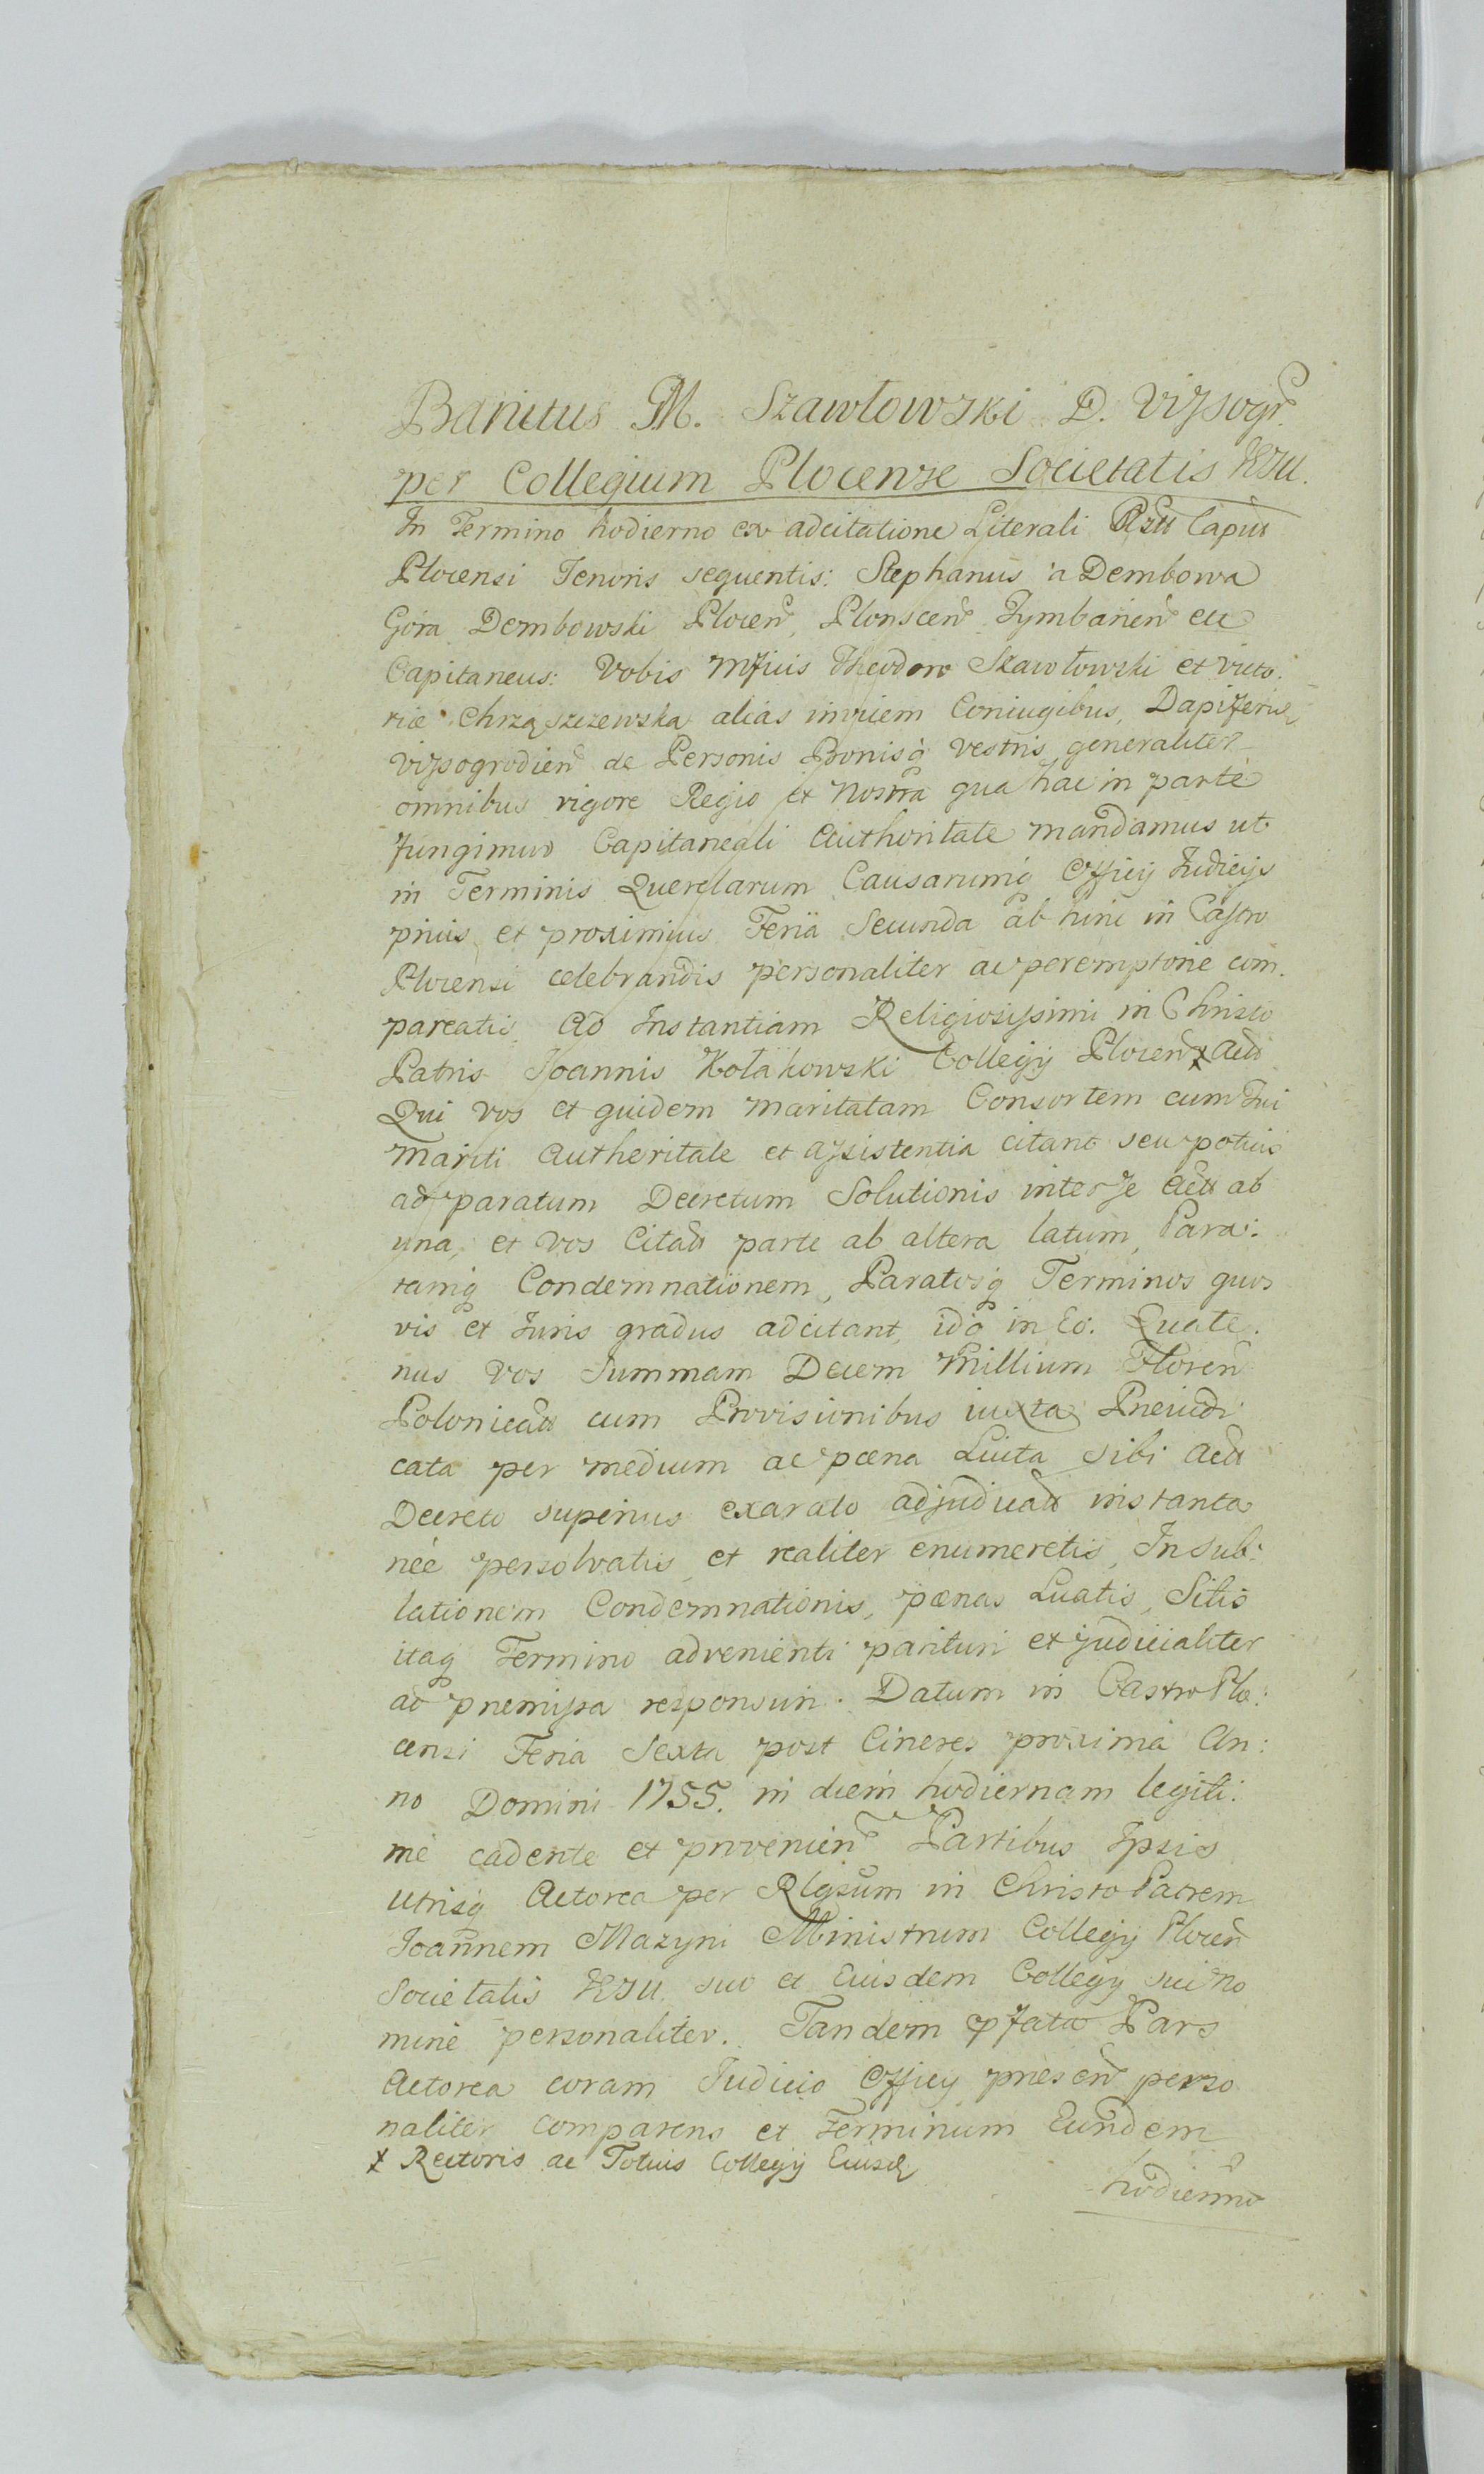 Banitus M. Szawłowski D. Vissogr.
per Collegium Plocense Societatis IESU.
In Termino hodierno ex adcitatione Literali
Plocensi Tenoris sequentis: Stephanus a Dembowa
Góra Dembowski Plocen, Plonscen Tymbarien etc
Capitaneus: Vobis Mfcis Theodoro Szawłowski et Victo:
rie Chrząszczewska alias invicem Coniugibus, Dapiferis
Vissogrodien de Personis Bonisq vestris generaliter
omnibus rigore Regio et Nostra qua hac in parte
fungimur Capitaneali Authoritate mandamus ut
in Terminis Querelarum Causarumq Officij Judicijs
primis et proximius Feria Secunda ab hinc in Castro
Plocensi celebrandis personaliter ac peremptorie com.
pareatis Ad Instantiam Religiosissimi in Christo
Patris Joannis Kołakowski Collegij Plocen x
Qui vos et quidem maritatam Consortem cum sui
mariti Authoritate et assistentia citant seu potius
ad paratum Decretum Solutionis inter se ab
una, et vos parte ab altera latum, Para:
tamq Condemnationem, Paratosq Terminos quos
vis et Juris gradus adcitant, idq in Eo. Quate.
nus vos Summam Decem Millium Floren
cum Provisionibus iuxta Preiudi
cata per medium ac pœna Luita sibi
Decreto superius exarato instanta
née persolvatis et realiter enumeretis, In sub:
lationem Condemnationis, pœnas Luatis, Sitis
itaq Termino advenienti parituri et judicialiter
ad premissa responsuri. Datum in Castro Plo:
censi Feria Sexta post Cineres proxima An:
no Domini 1755. in diem hodiernam legiti:
mè cadente et provenien Partibus Ipsis
utrisq Actorea per Rlgsum in Christo Patrem
Joannem Mazyni Ministrum Collegij Plocen
Societatis IESU, suo et Eiusdem Collegij sui no
mine personaliter. Tandem pfata Pars
Actorea coram Judicio Officij presen perso
naliter comparens et Terminum Eundem
x Rectoris ac Totius Collegij Eiusd
hodiernũ